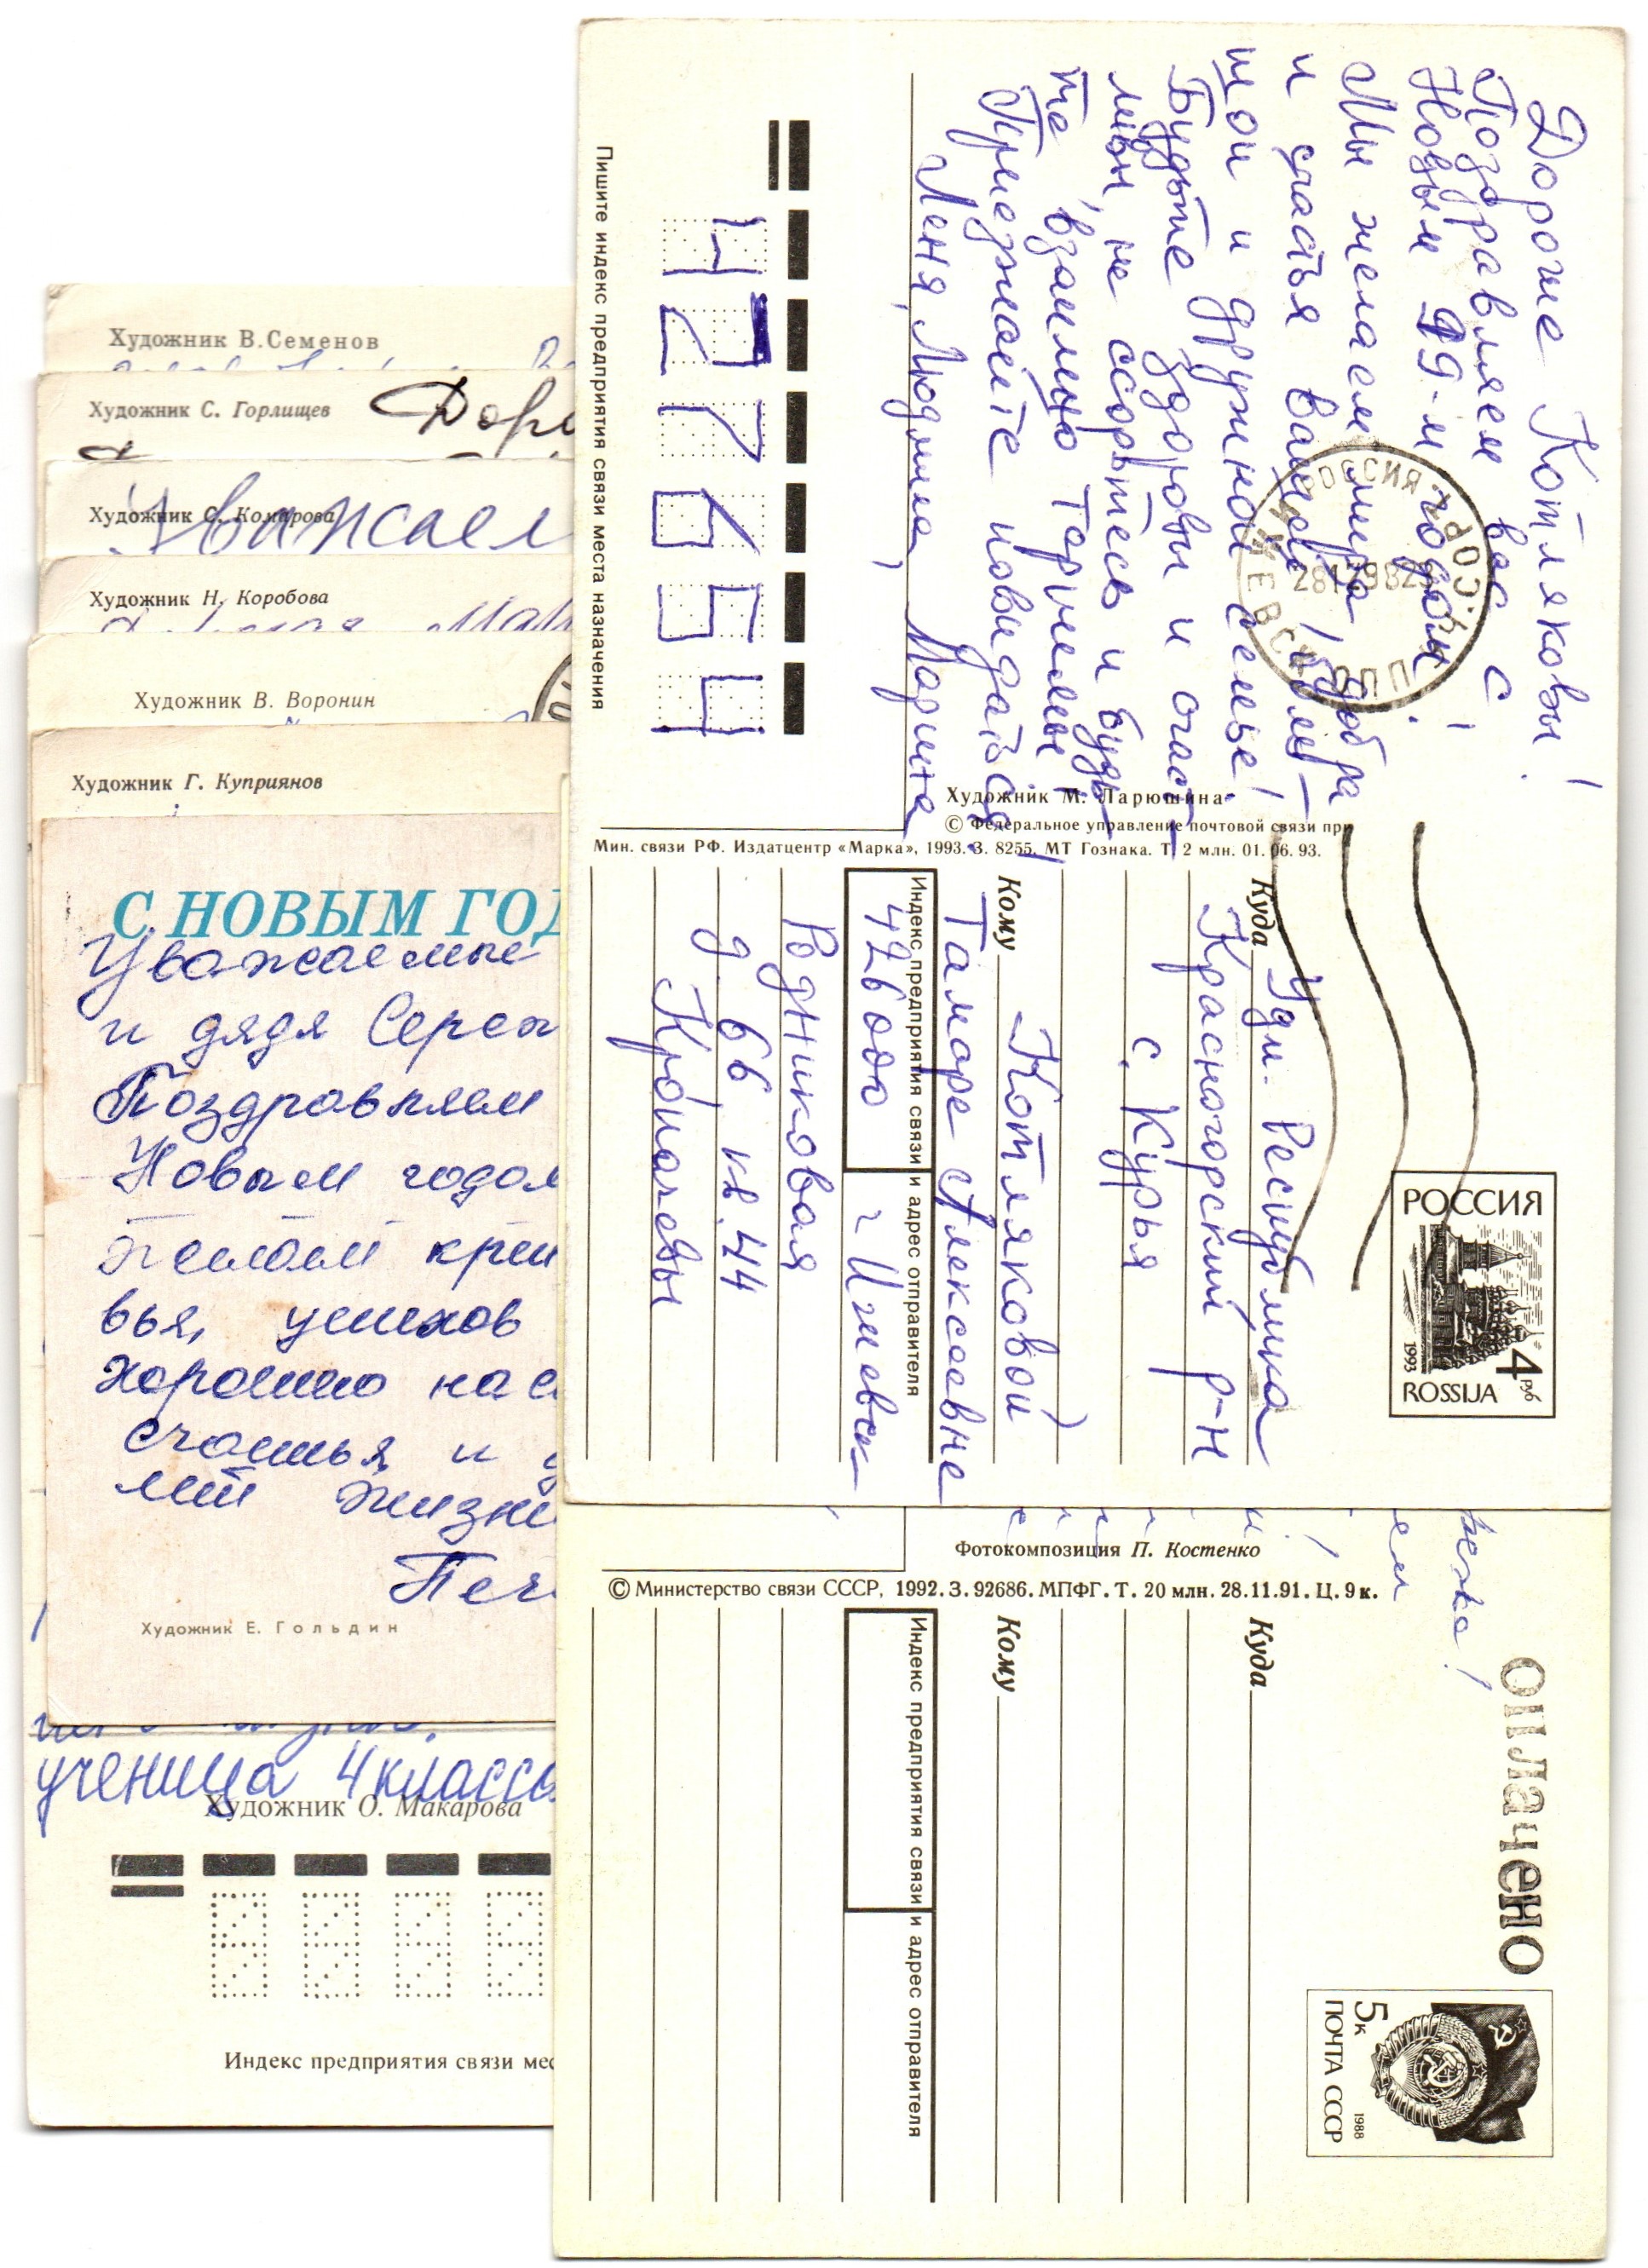 Художник В.Семенов
Художник С. Горлищев
Художник С. Комарова
Художник Н. Коробова
Художник В. Воронин
Художник Г. Куприянов
С НОВЫМ ГОД
Уважаемые
и дядя Серёж
Поздравляем
Новым годом
желаем креп
вья, успехов
хорошо нас
счастья и
лет жизни
Печ
Художник Е. Гольдин
ученица 4 класса
Художник О. Макарова
Индекс предприятия связи мес
Дорогие Котляковы!
Поздравляем вас с
Новым 99-м годом!
Мы желаем мира, добра
и счастья вашей боль-
шой и дружной семье!
Будьте здоровы и счаст-
ливы, не ссорьтесь и будь-
те взаимно терпимы!
Приезжайте повидаться!
Леня, Людмила, Марина
427654
Пишите индекс предприятия связи места назначения
РОССИЯ
Художник М. Ларюшина
© Федеральное управление почтовой связи при
Мин. связи РФ. Издатцентр «Марка», 1993. З. 8255. МТ Гознака. Т. 2 млн. 01. 06. 93.
РОССИЯ
1993
4 руб
ROSSIJA
Куда Удм. Республика
Красногорский р-н
с. Курья
Кому Котляковой
Тамаре Алексеевне
Индекс предприятия связи и адрес отправителя
426000 г. Ижевск
Родниковая
д. 66, кв. 44
Фотокомпозиция П. Костенко
© Министерство связи СССР, 1992. З. 92686. МПФГ. Т. 20 млн. 28.11.91. Ц. 9 к.
Оплачено
5к
ПОЧТА СССР
1988
Куда
Кому
Индекс предприятия связи и адрес отправителя